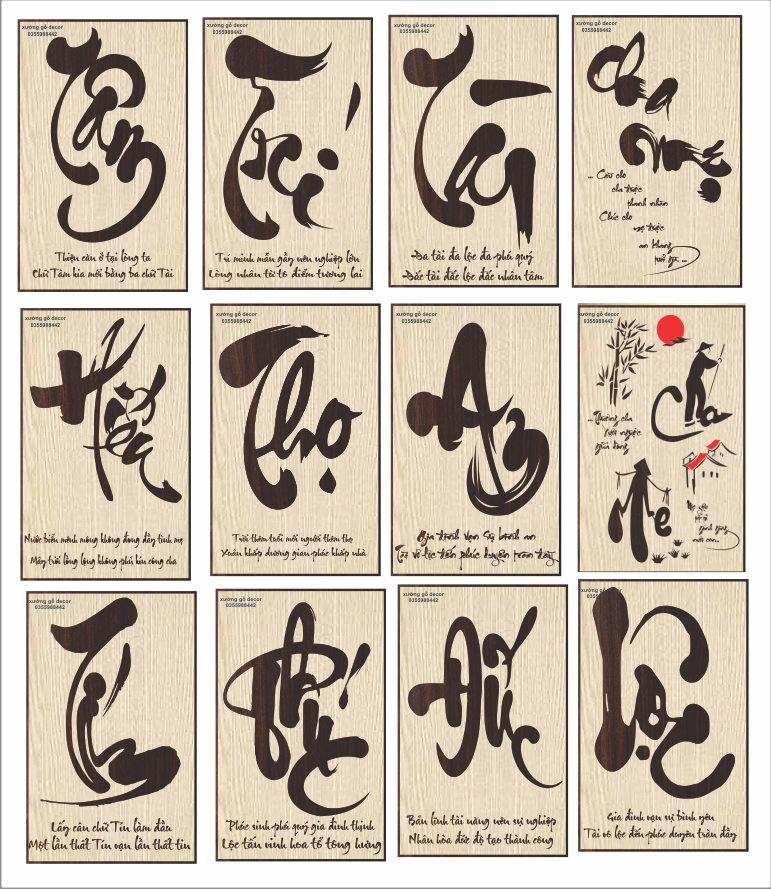 xưởng gỗ decor
0355988442
Tâm
Thiện căn ở tại lòng ta
Chữ Tâm kia mới bằng ba chữ Tài
xưởng gỗ decor
0355988442
Trí
Trí minh mẫn gầy nên nghiệp lớn
Lòng nhân từ tô điểm tương lai
xưởng gỗ decor
0355988442
Tài
Đa tài đa lộc đa phú quý
Đắc tài đắc lộc đắc nhân tâm
xưởng gỗ decor
0355988442
Cha
Mẹ
... Cầu cho
cha được
thanh nhàn
Chúc cho
mẹ được
an khang
tuổi già ...
xưởng gỗ decor
0355988442
Hiếu
Nước biển mênh mông không đong đầy tình mẹ
Mây trời lồng lộng không phủ kín công cha
xưởng gỗ decor
0355988442
Thọ
Trời thêm tuổi mới người thêm thọ
Xuân khắp dương gian phúc khắp nhà
xưởng gỗ decor
0355988442
An
Gia đình vạn sự bình an
Tài vô lộc tiến phúc duyên tràn đầy
xưởng gỗ decor
0355988442
Cha
... Thương cha
Mẹ
xưởng gỗ decor
0355988442
Tín
Lấy câu chữ Tín làm đầu
Một lần thất Tín vạn lần thất tin
xưởng gỗ decor
0355988442
Phúc
Phúc sinh phú quý gia đình thịnh
Lộc tấn vinh hoa tổ tông hưng
xưởng gỗ decor
0355988442
Đức
Bản lĩnh tài năng nên sự nghiệp
Nhân hòa đức độ tạo thành công
xưởng gỗ decor
Lộc
Gia đình vạn sự bình yên
Tài vô lộc đến phúc duyên tràn đầy